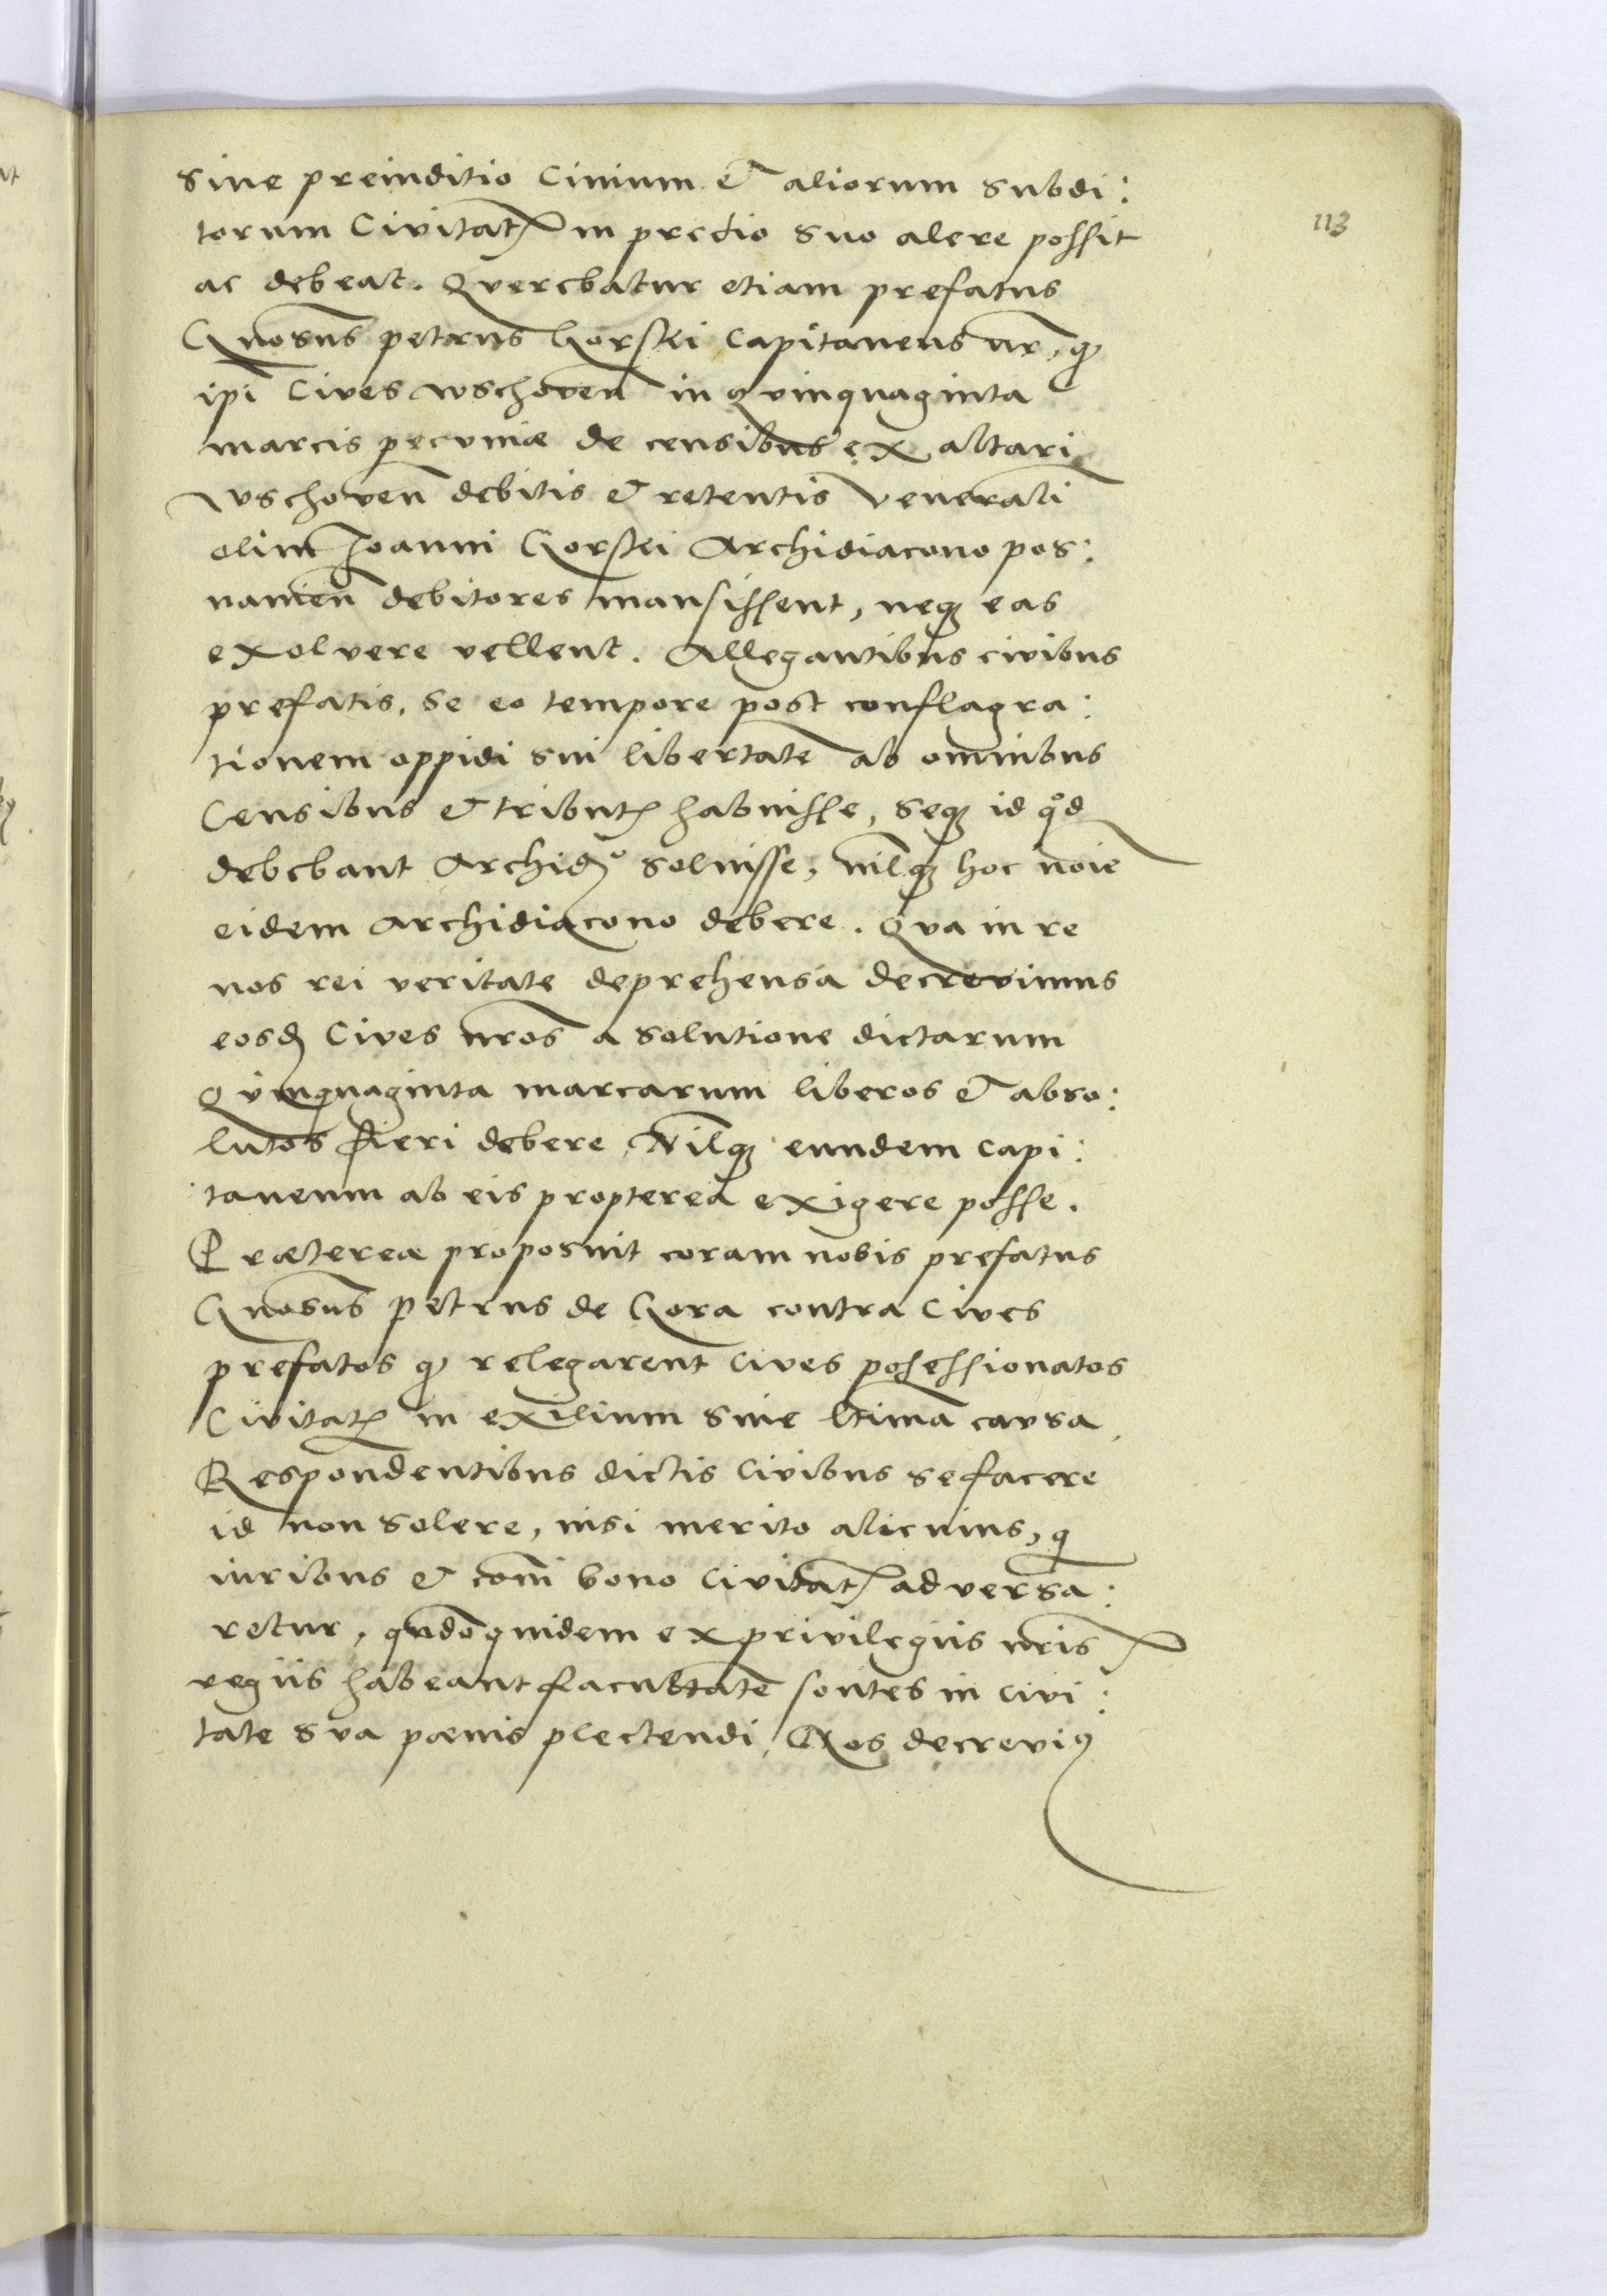 sine preiuditio Civium et aliorum subdi:
113
torum Civitatꝭ in predio suo alere possit
ac debeat. Querebatur etiam prefatus
Gnosus petrus Gorski Capitaneus nr̄, qꝫ
ip̄i Cives wschoven̄ in quinquaginta
marcis pecuniæ de censibus ex altari
wschoven̄ debitis et retentis venerabi
olim Joanni Gorski Archidiacono pos:
nanien̄ debitores mansissent, neqꝫ eas
exolvere vellent. Allegantibus civibus
prefatis, se eo tempore post conflagra:
tionem oppidi sui libertatē ab omnibus
Censibus et tributꝭ habuisse, seqꝫ id qōd
debebant Archidº solvisse, nilqꝫ hoc noīe
eidem archidiacono debere. Qua in re
nos rei veritate deprehensa decrevimus
eosdꝫ Cives nr̄os a solutione dictarum
quinquaginta marcarum liberos et abso:
lutos fieri debere, Nilqꝫ eundem capi:
taneum ab eis propterea exigere posse.
Prætereæ proposuit coram nobis prefatus
Gnosus petrus de Gora contra Cives
prefatos qꝫ relegarent Cives possessionatos
Civitatꝭ in exilium sine l̄tima causa,
Respondentibus dictis Civibus se facere
id non solere, nisi merito alicuius, q̄
iuribus et com̄i bono Civitatꝭ adversa:
retur, qn̄doquidem ex privilegiis nr̄is
regiis habeant facultatē sontes in Civi:
tate sua pœnis plectendi, Nos decreviꝰ